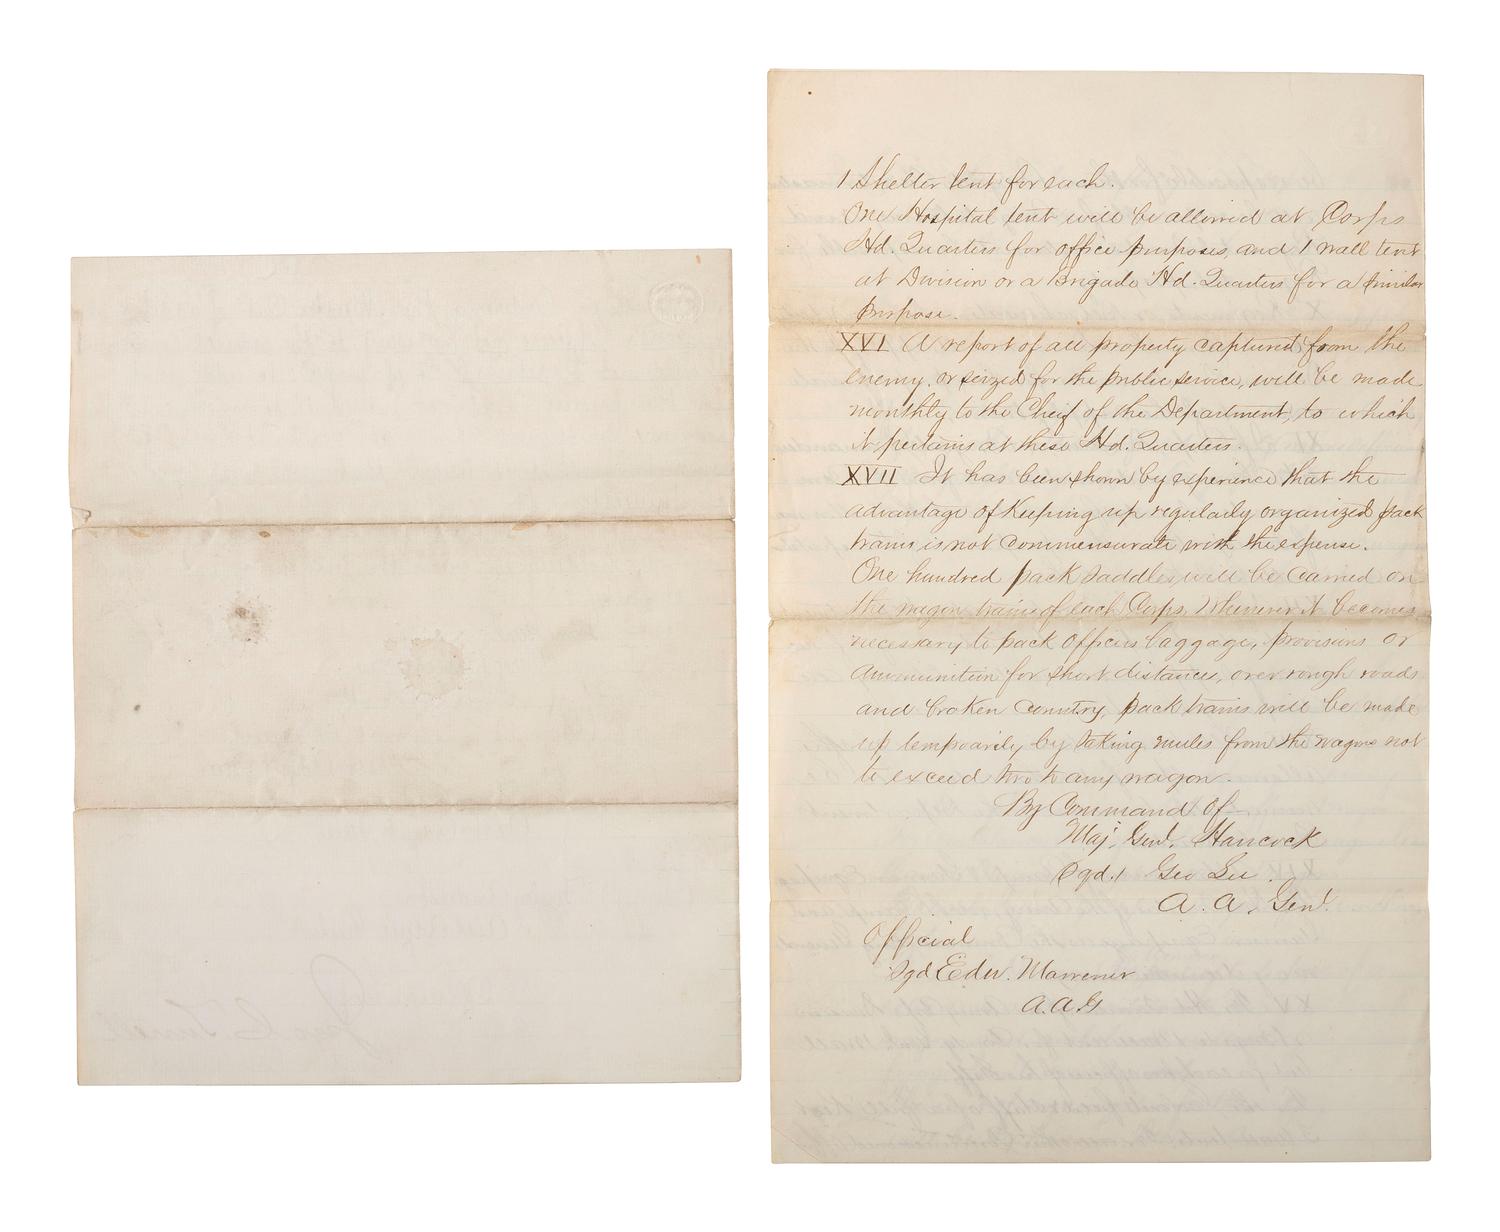 1 Shelter tent for each.
One Hospital tent will be allowed at Corps
Hd. Quarters for office purposes, and 1 wall tent
at Division or a Brigade Hd. Quarters for a similar
purpose.
XVI A report of all property captured from the
enemy, or seized for the public service, will be made
monthly to the Cheif of the Department, to which
it pertains at these Hd. Quarters.
XVII It has been shown by experience that the
advantage of Keeping up regularly organized pack
trains is not commensurate with the expense.
One hundred pack saddles will be carried on
the wagon trains of each Corps. Whenever it becomes
necessary to pack officers baggage, provisions or
ammunition for short distances, over rough roads
and broken country, pack trains will be made
up temporarily by taking mules from the wagons not
to exceed two to any wagon.
By Command of
Maj. Genl. Hancock
Sgd. Geo Lee
A. A. Genl.
Official
Sgd Edw.
A.A.G